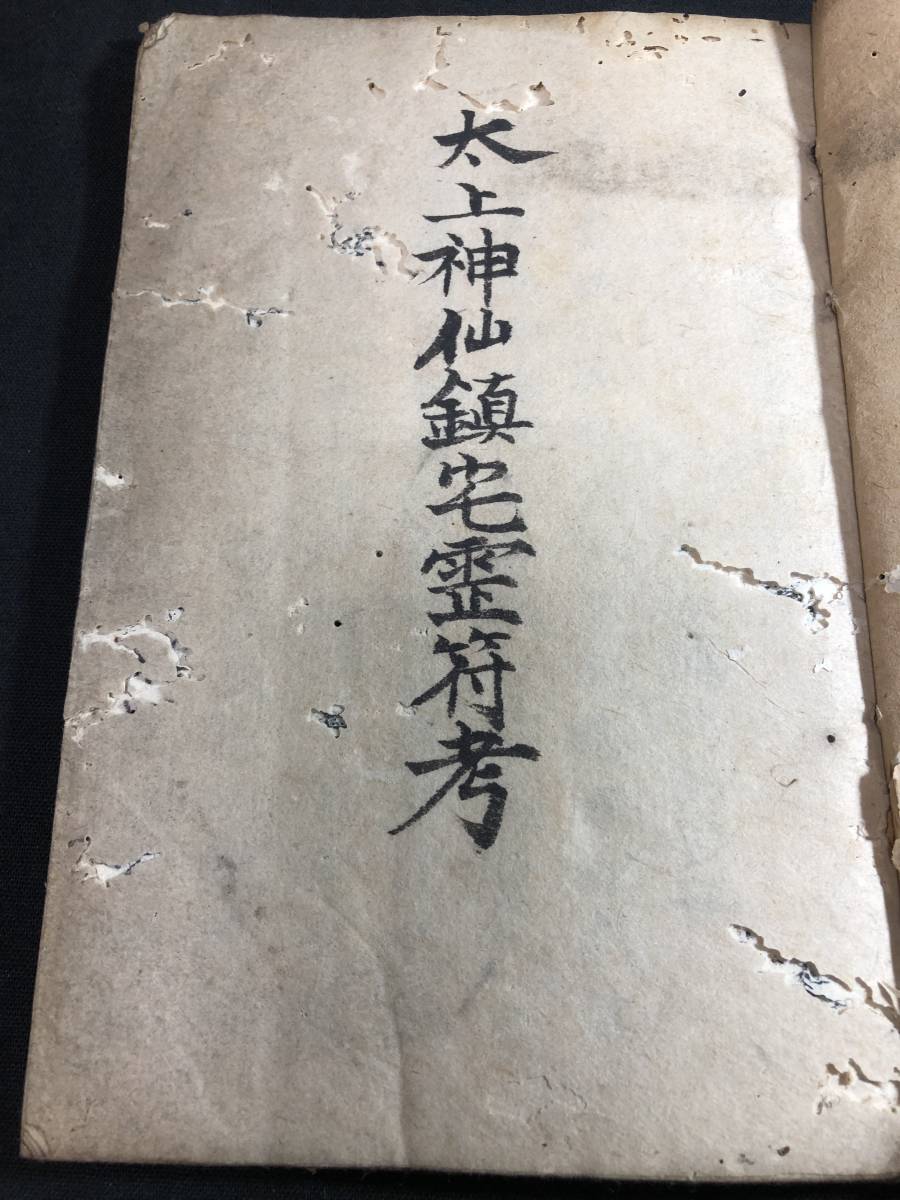 太上神仙鎮宅霊符考